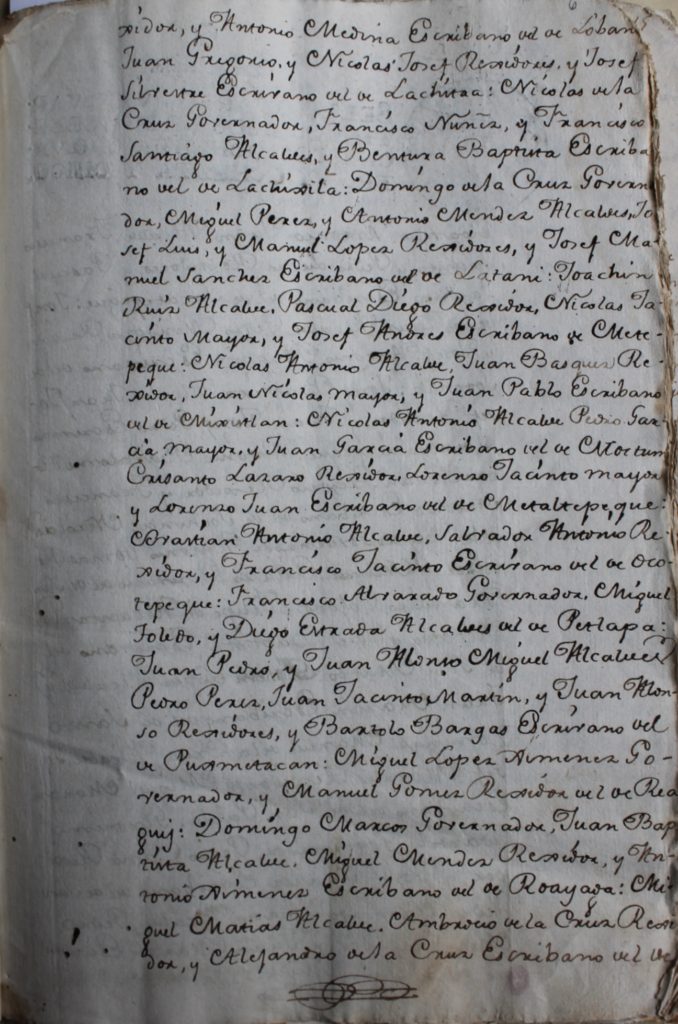 xidor, y Antonio Medina Escribano del de Lobani
Juan Gregorio, y Nicolas Josef Rexidores, y Josef
Silvestre Escrivano del de Lachitra: Nicolas de la
Cruz Governador, Francisco Nuñez, y Francisco
Santiago Alcaldes, y Bentura Baptista Escriba
no del de Lachixila: Domingo de la Cruz Governa
dor, Miguel Perez, y Antonio Mendez Alcaldes, Jo
sef Luis, y Manuel Lopez Rexidores, y Josef Ma-
nuel Sanchez Escribano del de Latani: Joachin
Ruiz Alcalde, Pascual Diego Rexidor, Nicolas Ja-
cinto Mayor, y Josef Andres Escribano de Mete-
peque: Nicolas Antonio Alcalde, Juan Basquez Re-
xidor, Juan Nicolas mayor, y Juan Pablo Escribano
del de Mixistlan: Nicolas Antonio Alcalde Pedro Gar-
cia mayor, y Juan Garcia Escribano del de Moctum
Crisanto Lazaro Rexidor, Lorenzo Jacinto mayor
y Lorenzo Juan Escribano del de Metaltepeque:
Sebastian Antonio Alcalde, Salvador Antonio Re-
xidor, y Francisco Jacinto Escrivano del de Oco-
tepeque: Francisco Alvarado Governador, Miguel
Toledo, y Diego Estrada Alcaldes del de Petlapa:
Juan Pedro, y Juan Alonso Miguel Alcaldes
Pedro Perez, Juan Jacinto Martin, y Juan Alon-
so Rexidores, y Bartolo Bargas Escrivano del
de Puxmetacan: Miguel Lopez Ximenez Go-
vernador, y Manuel Gomez Rexidor del de Rea
guij: Domingo Marcos Governador, Juan Bap
tista Alcalde, Miguel Mendez Rexidor, y An-
tonio Ximenez Escribano del de Roayaga: Mi-
guel Matias Alcalde, Ambrocio de la Cruz Rexi
dor, y Alejandro de la Cruz Escribano del de